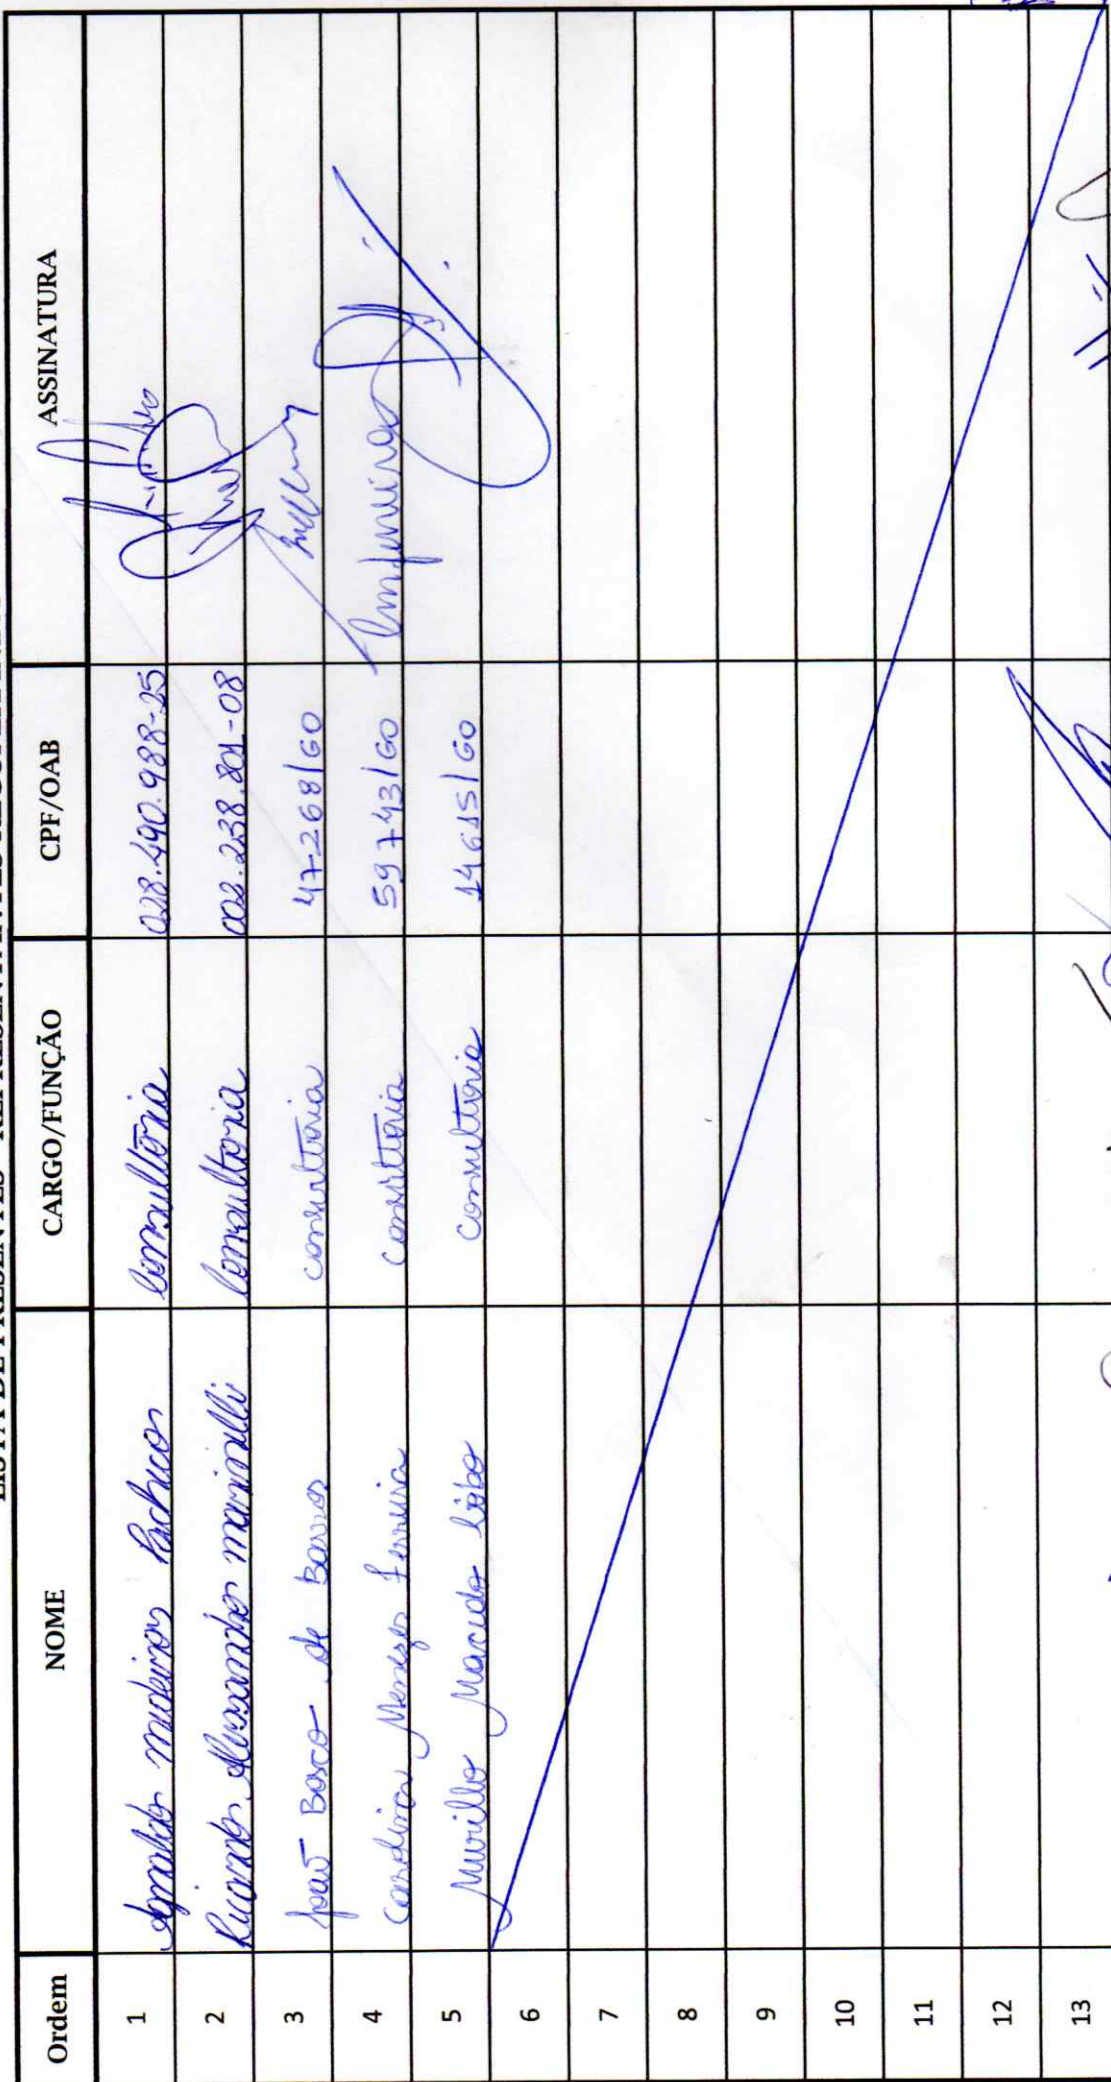 LISTA DE PRESENTES - REPRESENTANTES RECUPERANDAS
Ordem NOME CARGO/FUNÇÃO CPF/OAB ASSINATURA
1 Agnaldo medeiros Pacheco Consultoria 028.490.988-25
2 Ricardo Alessandro marinelli Consultoria 002.238.801-08
3 João Bosco de Barros consultoria 47.268/GO
4 Carolina Menezes Ferreira consultoria 59743/GO
5 Murillo Macedo Lôbo consultoria 14615/GO
6
7
8
9
10
11
12
13